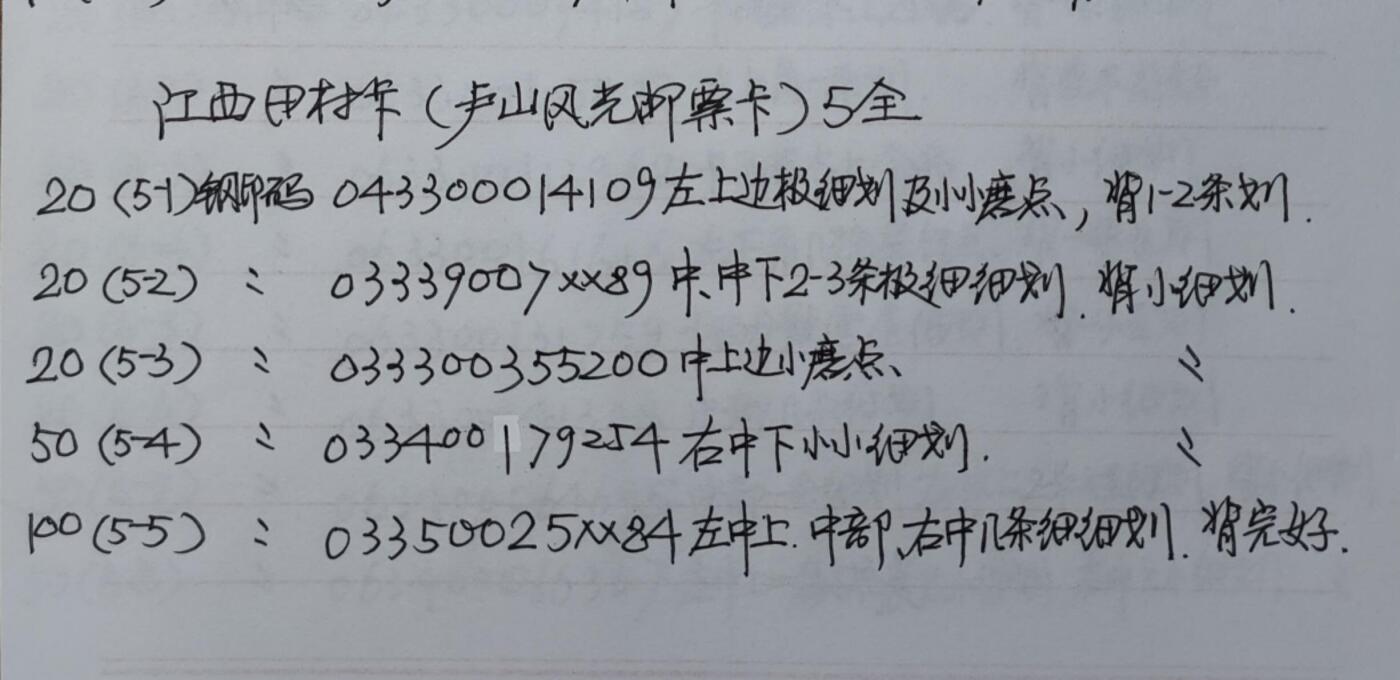 江西田村卡(庐山风光邮票卡)5全
20(5-1)钢印码 043300014109左上边极细划及小小磨点,背1-2条划.
20(5-2) 〃 03339007xx89中、中下2-3条极细细划.背小细划.
20(5-3) 〃 033300355200中上边小磨点、 〃
50(5-4) 〃 033400179254右中下小小细划. 〃
100(5-5) 〃 03350025xx84左中上.中部、右中几条细细划.背完好.